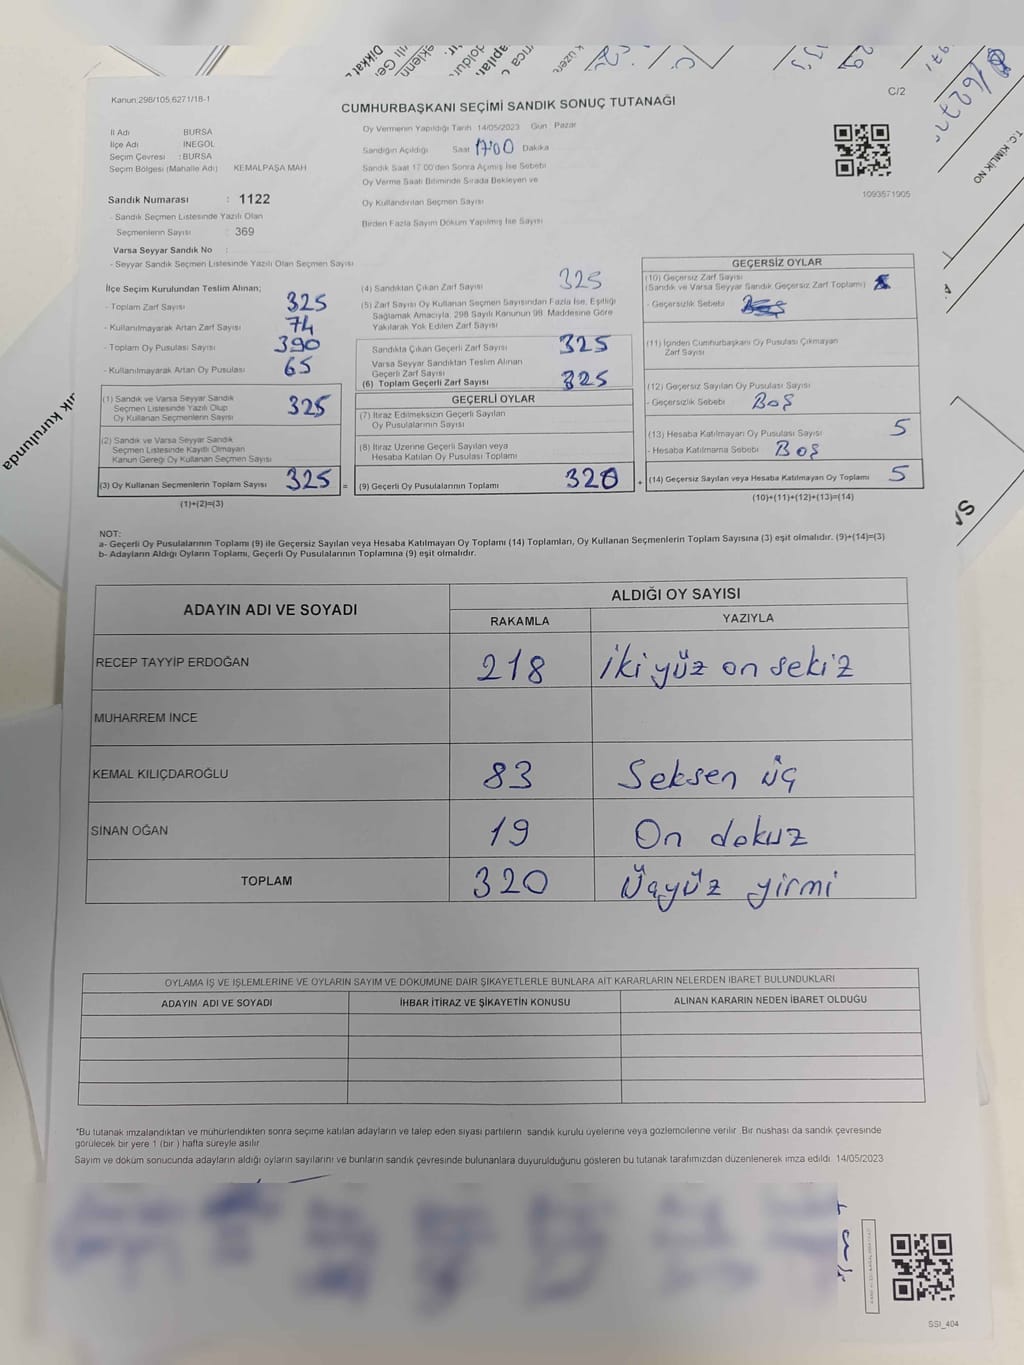 Kanun:298/105,6271/18-1
CUMHURBAŞKANI SEÇİMİ SANDIK SONUÇ TUTANAĞI
C/2
İl Adı BURSA
İlçe Adı İNEGÖL
Seçim Çevresi : BURSA
Seçim Bölgesi (Mahalle Adı) KEMALPAŞA MAH
Sandık Numarası : 1122
- Sandık Seçmen Listesinde Yazılı Olan
Seçmenlerin Sayısı : 369
Varsa Seyyar Sandık No :
- Seyyar Sandık Seçmen Listesinde Yazılı Olan Seçmen Sayısı
Oy Vermenin Yapıldığı Tarih 14/05/2023 Gün Pazar
Sandığın Açıldığı Saat 17:00 Dakika
Sandık Saat 17:00'den Sonra Açılmış İse Sebebi
Oy Verme Saati Bitiminde Sırada Bekleyen ve
Oy Kullandırılan Seçmen Sayısı
Birden Fazla Sayım Döküm Yapılmış İse Sayısı
1093571905
T.C. KİMLİK NO
İlçe Seçim Kurulundan Teslim Alınan;
- Toplam Zarf Sayısı 325
- Kullanılmayarak Artan Zarf Sayısı 74
- Toplam Oy Pusulası Sayısı 390
- Kullanılmayarak Artan Oy Pusulası 65
(1) Sandık ve Varsa Seyyar Sandık
Seçmen Listesinde Yazılı Olup
Oy Kullanan Seçmenlerin Sayısı 325
(2) Sandık ve Varsa Seyyar Sandık
Seçmen Listesinde Kayıtlı Olmayan
Kanun Gereği Oy Kullanan Seçmen Sayısı
(3) Oy Kullanan Seçmenlerin Toplam Sayısı 325 =
(1)+(2)=(3)
(4) Sandıktan Çıkan Zarf Sayısı 325
(5) Zarf Sayısı Oy Kullanan Seçmen Sayısından Fazla İse, Eşitliği
Sağlamak Amacıyla, 298 Sayılı Kanunun 98. Maddesine Göre
Yakılarak Yok Edilen Zarf Sayısı
Sandıkta Çıkan Geçerli Zarf Sayısı 325
Varsa Seyyar Sandıktan Teslim Alınan
Geçerli Zarf Sayısı
(6) Toplam Geçerli Zarf Sayısı 325
GEÇERLİ OYLAR
(7) İtiraz Edilmeksizin Geçerli Sayılan
Oy Pusulalarının Sayısı
(8) İtiraz Üzerine Geçerli Sayılan veya
Hesaba Katılan Oy Pusulası Toplamı
(9) Geçerli Oy Pusulalarının Toplamı 320 +
GEÇERSİZ OYLAR
(10) Geçersiz Zarf Sayısı
(Sandık ve Varsa Seyyar Sandık Geçersiz Zarf Toplamı)
- Geçersizlik Sebebi
(11) İçinden Cumhurbaşkanı Oy Pusulası Çıkmayan
Zarf Sayısı
(12) Geçersiz Sayılan Oy Pusulası Sayısı
- Geçersizlik Sebebi Boş
(13) Hesaba Katılmayan Oy Pusulası Sayısı 5
- Hesaba Katılmama Sebebi Boş
(14) Geçersiz Sayılan veya Hesaba Katılmayan Oy Toplamı 5
(10)+(11)+(12)+(13)=(14)
NOT:
a- Geçerli Oy Pusulalarının Toplamı (9) ile Geçersiz Sayılan veya Hesaba Katılmayan Oy Toplamı (14) Toplamları, Oy Kullanan Seçmenlerin Toplam Sayısına (3) eşit olmalıdır. (9)+(14)=(3)
b- Adayların Aldığı Oyların Toplamı, Geçerli Oy Pusulalarının Toplamına (9) eşit olmalıdır.
ADAYIN ADI VE SOYADI ALDIĞI OY SAYISI
RAKAMLA YAZIYLA
RECEP TAYYİP ERDOĞAN 218 iki yüz on sekiz
MUHARREM İNCE
KEMAL KILIÇDAROĞLU 83 Seksen üç
SİNAN OĞAN 19 On dokuz
TOPLAM 320 Üçyüz yirmi
OYLAMA İŞ VE İŞLEMLERİNE VE OYLARIN SAYIM VE DÖKÜMÜNE DAİR ŞİKAYETLERLE BUNLARA AİT KARARLARIN NELERDEN İBARET BULUNDUKLARI
ADAYIN ADI VE SOYADI İHBAR İTİRAZ VE ŞİKAYETİN KONUSU ALINAN KARARIN NEDEN İBARET OLDUĞU
*Bu tutanak imzalandıktan ve mühürlendikten sonra seçime katılan adayların ve talep eden siyasi partilerin sandık kurulu üyelerine veya gözlemcilerine verilir. Bir nüshası da sandık çevresinde
görülecek bir yere 1 (bir ) hafta süreyle asılır.
Sayım ve döküm sonucunda adayların aldığı oyların sayılarını ve bunların sandık çevresinde bulunanlara duyurulduğunu gösteren bu tutanak tarafımızdan düzenlenerek imza edildi. 14/05/2023
SSI_404